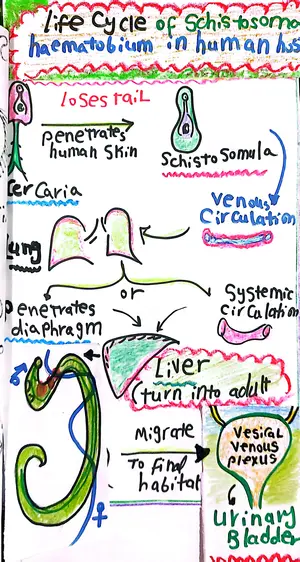 Life Cycle of Schistosoma
haematobium in human hos
loses tail
penetrates
human skin
Schistosomula
Cercaria
Venous
Circulation
Lung
or
Penetrates
diaphragm
Systemic
Circulation
Liver
(turn into adult
Migrate
To final
habitat
Vesical
venous
plexus
Urinary
Bladder
♂
♀